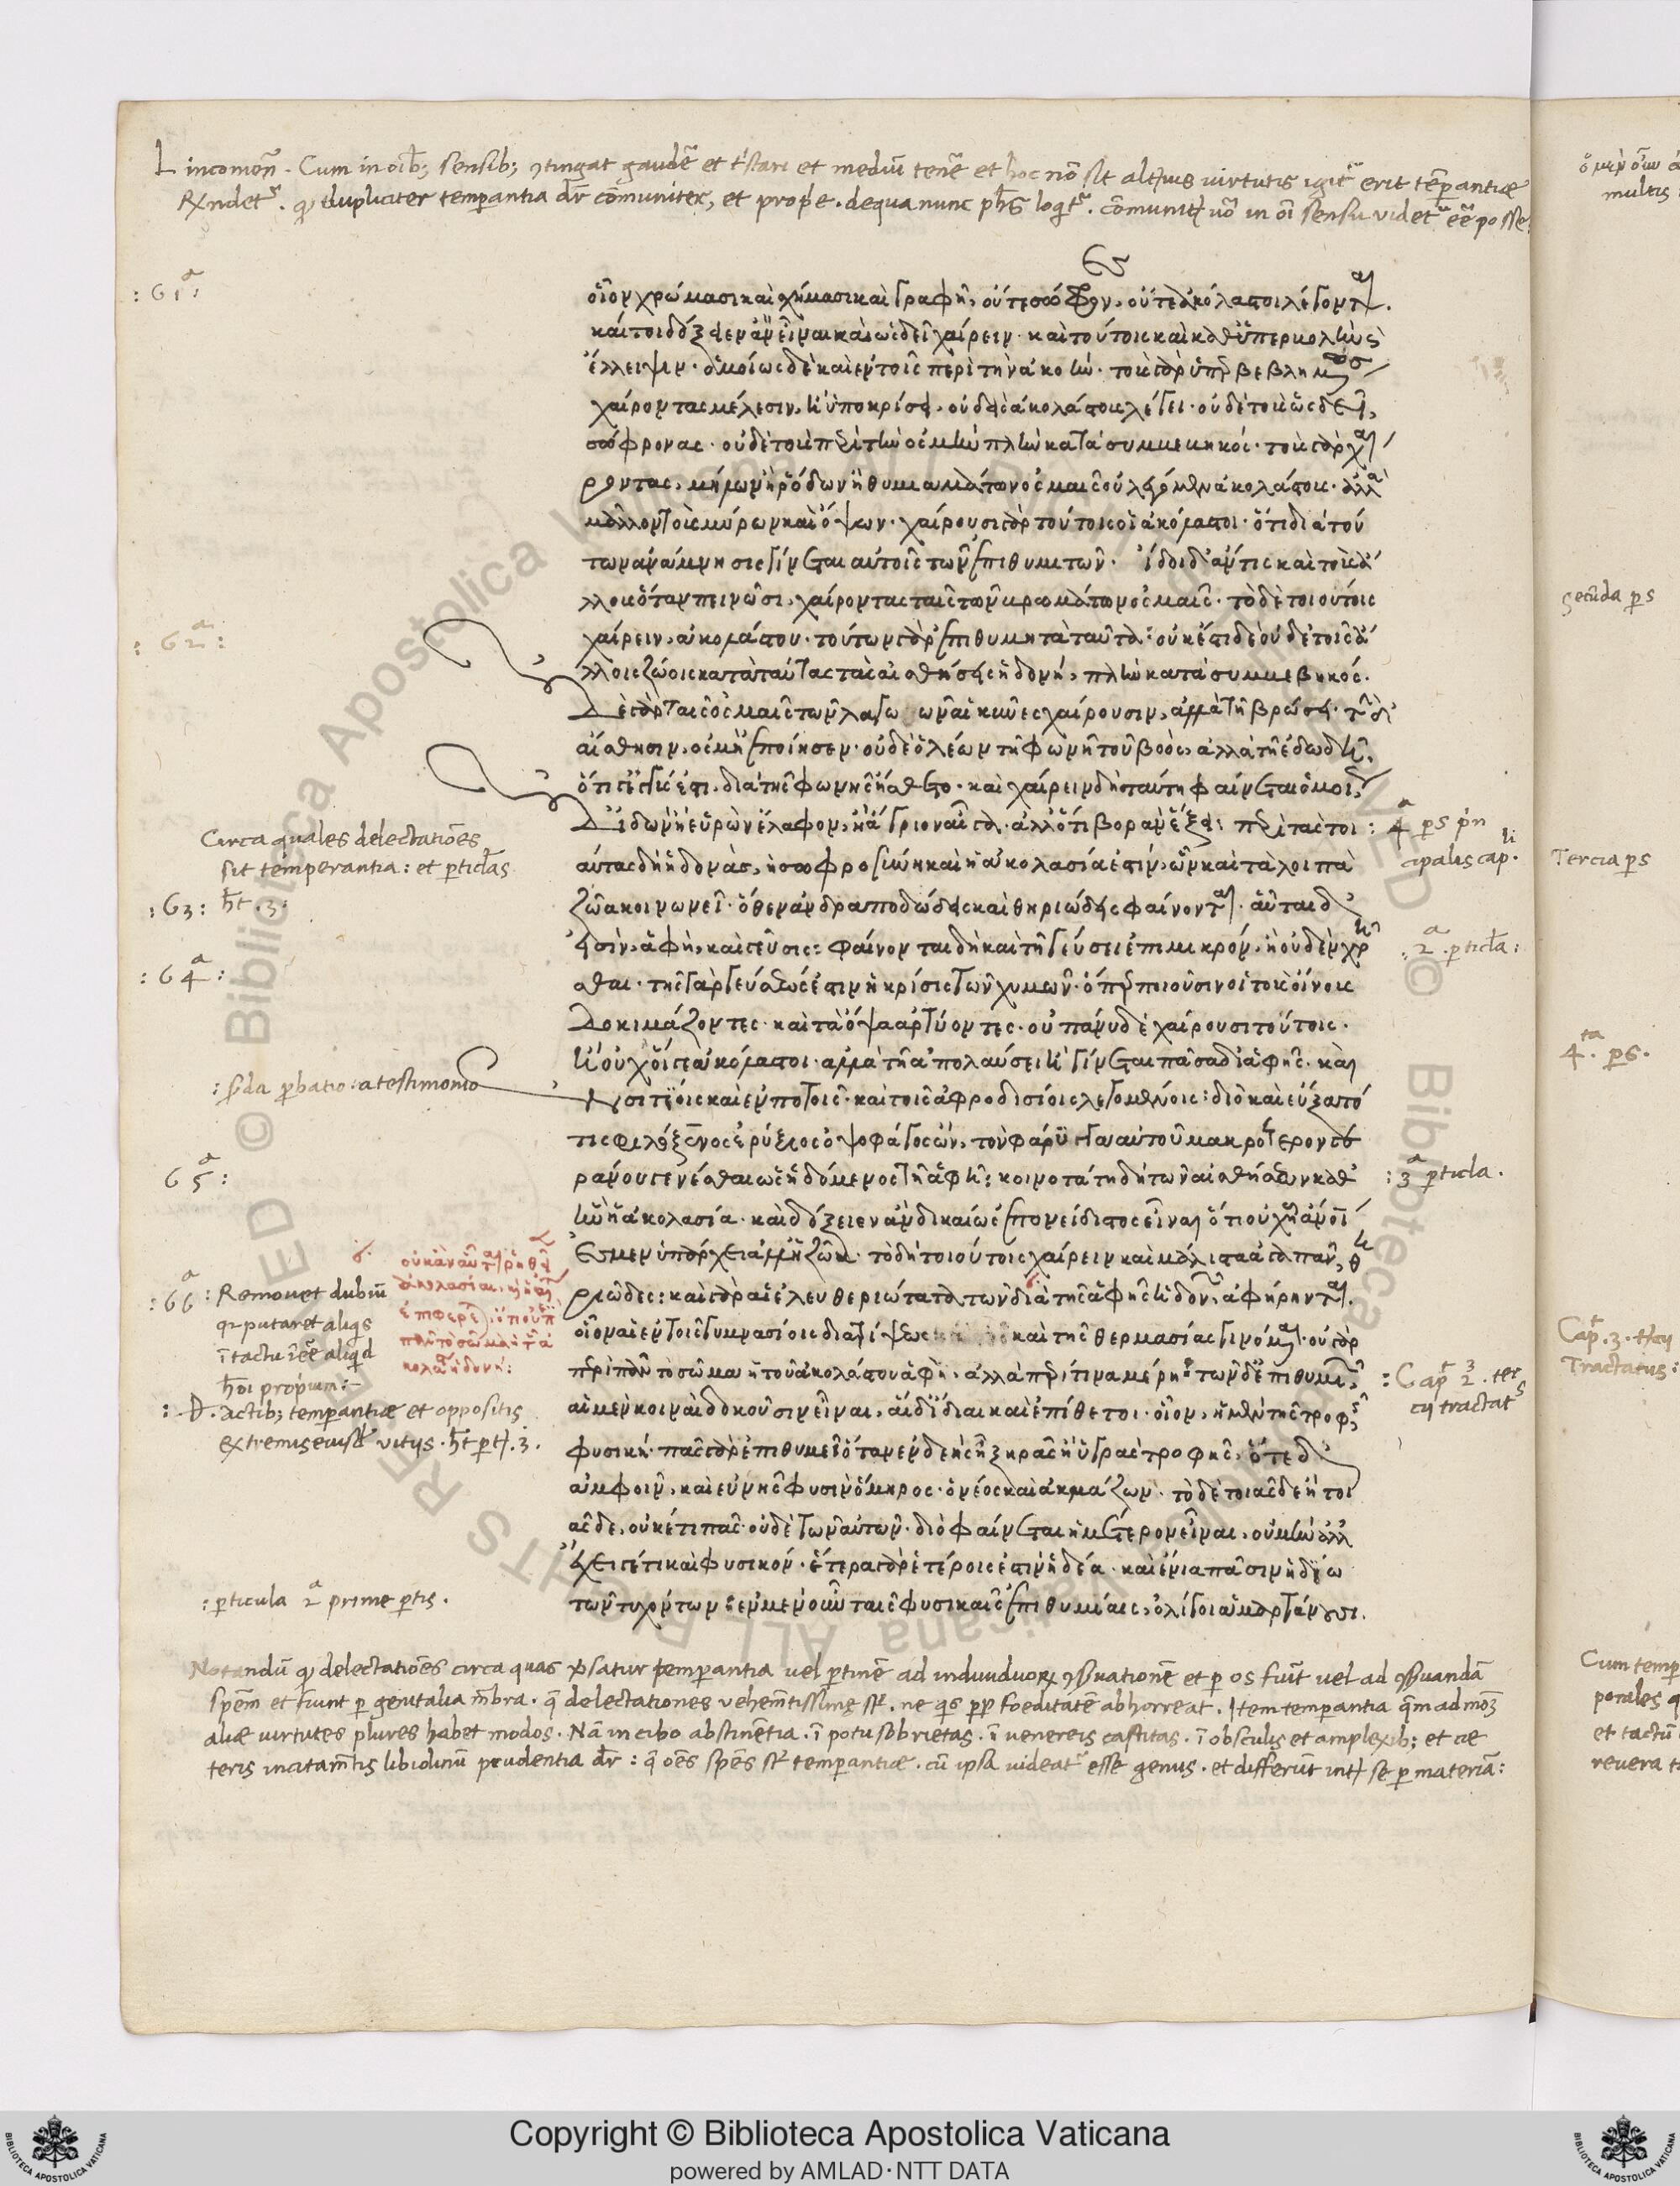 Lincomoñ. Cum in oib; sensib; ɔtingat gaudẽ et tʼstari et mediũ tenẽ et hoc nõ sit altiuis uirtutis igitʳ erit tẽperantiæ
Rñdetʳ. qd dupliciter temperantia dr̃ cõmuniter, et prope. de qua nunc phs loqitʳ. cõmunit uo in oi sensu videtʳ eẽ posse.
: 61ª :
οἷον χρώμασι καὶ σχήμασι καὶ γραφῆ, οὔτε σώφρον, οὔτε ἀκόλαστοι λέγονται.
καίτοι δόξειεν ἂν εἶναι καὶ ὡς δεῖ χαίρειν· καὶ τούτοις καὶ καθ' ὑπερβολὴν καὶ
ἔλλειψιν· ὁμοίως δὲ καὶ ἐν τοῖς περὶ τὴν ἀκοήν· τοὺς γὰρ ὑπερβεβλημένως
χαίροντας μέλεσιν, ἢ ὑποκρίσει, οὐδεὶς ἀκολάστους λέγει· οὐδὲ τοὺς ὡς δεῖ,
σώφρονας· οὐδὲ τοὺς περὶ τὴν ὀσμὴν πλὴν κατὰ συμβεβηκός· τοὺς γὰρ χαί
ροντας, μήλων ἢ ῥόδων ἢ θυμιαμάτων ὀσμαῖς οὐ λέγομεν ἀκολάστους· ἀλλὰ
μᾶλλον τοῖς μύρων καὶ ὄψων· χαίρουσι γὰρ τούτοις οἱ ἀκόλαστοι· ὅτι διὰ τού
των ἀνάμνησις γίνεται αὐτοῖς τῶν ἐπιθυμητῶν· ἴδοι δ' ἄν τις καὶ τοὺς ἄ
λλους ὅταν πεινῶσι, χαίροντας ταῖς τῶν βρωμάτων ὀσμαῖς· τὸ δὲ τοιούτοις
: 62ª :
χαίρειν, ἀκολάστου· τούτων γὰρ ἐπιθυμητὰ ταῦτα: οὐκ ἔστι δὲ οὐδὲ τοῖς ἄ
λλοις ζώοις κατὰ ταύτας τὰς αἰσθήσεις ἡδονή, πλὴν κατὰ συμβεβηκός.
Δὲ γὰρ ταῖς ὀσμαῖς τῶν λαγωῶν αἱ κύνες χαίρουσιν, ἀλλὰ τῆ βρώσει· τὴν δ'
αἴσθησιν, ὀσμὴ ἐποίησεν· οὐδὲ ὁ λέων τῆ φωνῆ τοῦ βοὸς, ἀλλὰ τῆ ἐδωδῆ,
ὅτι ἐγγύς ἐστι, διὰ τῆς φωνῆς ἤσθετο· καὶ χαίρειν δὴ ταύτη φαίνεται ὁμοίως
Circa quales delectatiões
sit temperantia: et particlãs
Δ' ἰδὼν ἢ εὑρὼν ἔλαφον, ἢ ἄγριον αἶγα· ἀλλ' ὅτι βορὰν ἕξει: περὶ τὰς τοι
: 4ª ps prin
cipalis cap.li
αύτας δὴ ἡδονὰς, ἡ σωφροσύνη καὶ ἡ ἀκολασία ἐστίν, ὧν καὶ τὰ λοιπὰ
: 63: h̃t .3:
ζῶα κοινωνεῖ· ὅθεν ἀνδραποδώδεις καὶ θηριώδεις φαίνονται· αὗται δ'
εἰσὶν, ἁφὴ, καὶ γεῦσις: φαίνονται δὴ καὶ τῆ γεύσει ἐπὶ μικρὸν, ἢ οὐδὲν χρῆ
.2ª .pticla:
: 64ª :
σθαι· τῆς γὰρ γεύσεώς ἐστιν ἡ κρίσις τῶν χυμῶν· ὅπερ ποιοῦσιν οἱ τοὺς οἴνους
δοκιμάζοντες· καὶ τὰ ὄψα ἀρτύοντες· οὐ πάνυ δὲ χαίρουσι τούτοις·
ἢ οὐχ οἵ γε ἀκόλαστοι· ἀλλὰ τῆ ἀπολαύσει ἣ γίνεται πᾶσα δι' ἁφῆς· καὶ
: scda pbatio: a testimonio
ἐν σιτίοις καὶ ἐν ποτοῖς· καὶ τοῖς ἀφροδισίοις λεγομένοις: διὸ καὶ εὔξατό
τις φιλόξενος ἐρύξιος ὀψοφάγος ὢν, τὸν φάρυγγα αὐτοῦ μακρότερον γε
65ª :
ράνου γενέσθαι ὡς ἡδόμενος τῆ ἁφῆ: κοινοτάτη δὴ τῶν αἰσθήσεων καθ'
: 3ª pticla.
ἣν ἡ ἀκολασία· καὶ δόξειεν ἂν δικαίως ἐπονείδιστος εἶναι ὅτι οὐχ ἧ ἄνθρωποί
ἐσμεν ὑπάρχει ἀλλ' ἧ ζῶα· τὸ δὴ τοιούτοις χαίρειν καὶ μάλιστα ἀγαπᾶν, θη
: 66ª : Remouet dubiũ
qz putaret aliqs
ĩ tactu ĩeẽ aliqd
hoi propium:
ριῶδες: καὶ γὰρ αἱ ἐλευθεριώταται τῶν διὰ τῆς ἁφῆς ἡδονῶν ἀφήρηνται.
οἷον αἱ ἐν τοῖς γυμνασίοις διὰ τρίψεως καὶ τῆς θερμασίας γινόμεναι· οὐ γὰρ
περὶ πᾶν τὸ σῶμα ἡ τοῦ ἀκολάστου ἁφὴ, ἀλλὰ περί τινα μέρη: τῶν δ' ἐπιθυμιῶν
: Cap.t 2.3 ter
cij tractatʳ
: D. actib; temperantiæ et oppositis
extremis eiusd vitijs. h̃t pt .3.
αἱ μὲν κοιναὶ δοκοῦσιν εἶναι, αἱ δ' ἴδιαι καὶ ἐπίθετοι· οἷον, ἡ μὲν τῆς τροφῆς
φυσική· πᾶς γὰρ ἐπιθυμεῖ ὅταν ἐνδεὴς ἦ ξηρᾶς ἢ ὑγρᾶς τροφῆς, ὁτὲ δ'
ἀμφοῖν, καὶ εὐνῆς φυσὶν ὅμηρος· ὁ νέος καὶ ἀκμάζων· τὸ δὲ τοιᾶσδε ἢ τοι
ᾶσδε, οὐκέτι πᾶς· οὐδὲ τῶν αὐτῶν· διὸ φαίνεται ἡμέτερον εἶναι, οὐ μὴν ἀλλ'
ἔχει γέ τι καὶ φυσικόν· ἕτερα γὰρ ἑτέροις ἐστὶν ἡδέα· καὶ ἔνια πᾶσιν ἡδίω
: pticula 2ª prime ptis.
τῶν τυχόντων: ἐν μὲν οὖν ταῖς φυσικαῖς ἐπιθυμίαις, ὀλίγοι ἁμαρτάνουσι.
Notandũ qd delectatiões circa quas v̉satur temperantia uel ptinẽ ad indiuiduorũ ɔseruationẽ et p os fiũt uel ad ɔseruandã
spẽm et fiunt p genitalia m̃bra. q̃ delectationes vehem̃tissimę st̃. ne qs pp fœditatẽ abhorreat. Item temperantia q̃madmoȝ
aliæ virtutes plures habet modos. Nã in cibo abstinẽtia. ĩ potu sobrietas. ĩ venereis castitas. ĩ obsculis et amplexib; et cæ
teris incitam̃tis libidinũ prudentia dr̃: q̃ oẽs spẽs st̃ temperantiæ. cũ ipsa uideatʳ esse genus. et differũt int se p materiã:
multis
Secũda ps
Tercia ps
4.ta ps.
Cap.t .3. tercij
Tractatus:
Cum temper
et tactũ
Copyright © Biblioteca Apostolica Vaticana
powered by AMLAD·NTT DATA
BIBLIOTECA APOSTOLICA VATICANA
BIBLIOTECA APOSTOLICA VATICANA